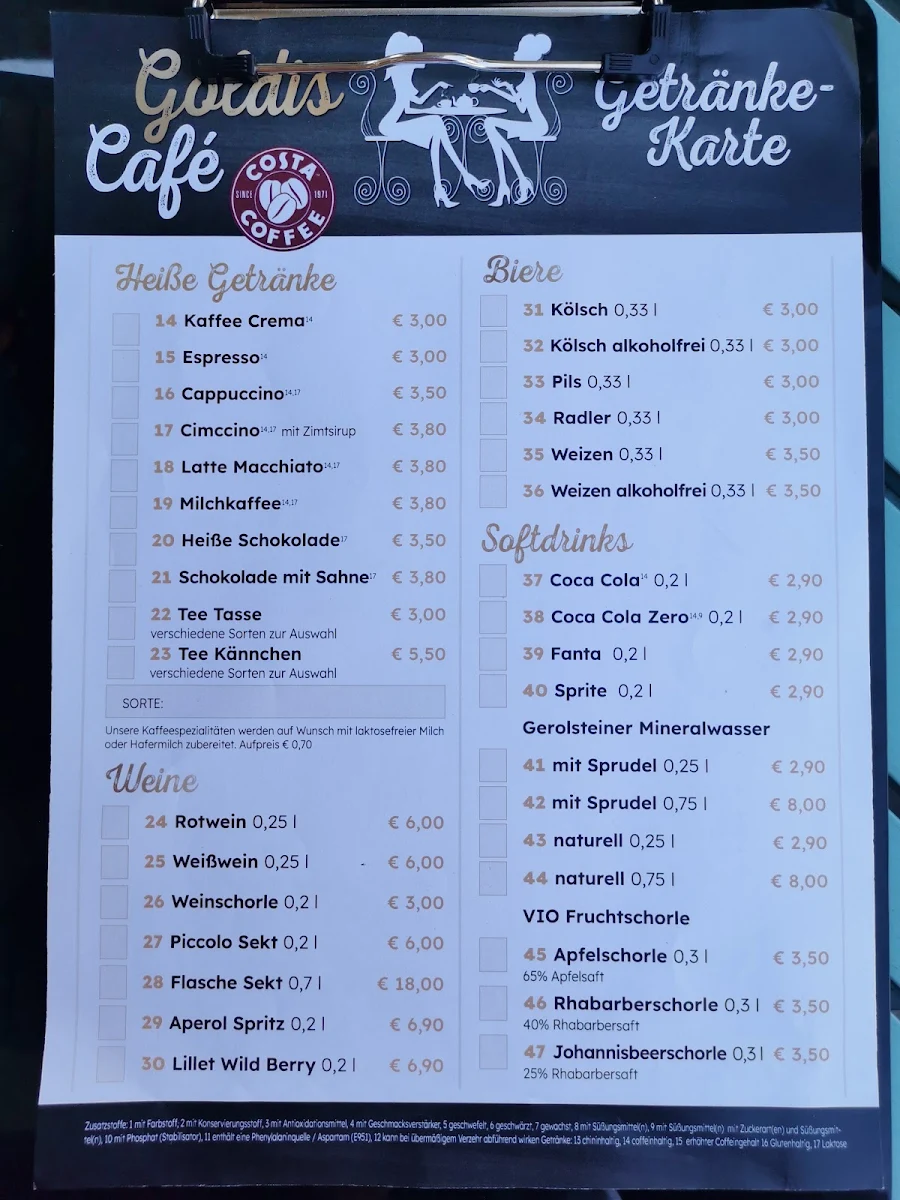 Goldis
Café
COSTA
SINCE 1971
COFFEE
Getränke-
Karte
Heiße Getränke
14 Kaffee Crema14 € 3,00
15 Espresso14 € 3,00
16 Cappuccino14,17 € 3,50
17 Cimccino14,17 mit Zimtsirup € 3,80
18 Latte Macchiato14,17 € 3,80
19 Milchkaffee14,17 € 3,80
20 Heiße Schokolade17 € 3,50
21 Schokolade mit Sahne17 € 3,80
22 Tee Tasse € 3,00
verschiedene Sorten zur Auswahl
23 Tee Kännchen € 5,50
verschiedene Sorten zur Auswahl
SORTE:
Unsere Kaffeespezialitäten werden auf Wunsch mit laktosefreier Milch
oder Hafermilch zubereitet. Aufpreis € 0,70
Weine
24 Rotwein 0,25 l € 6,00
25 Weißwein 0,25 l - € 6,00
26 Weinschorle 0,2 l € 3,00
27 Piccolo Sekt 0,2 l € 6,00
28 Flasche Sekt 0,7 l € 18,00
29 Aperol Spritz 0,2 l € 6,90
30 Lillet Wild Berry 0,2 l € 6,90
Biere
31 Kölsch 0,33 l € 3,00
32 Kölsch alkoholfrei 0,33 l € 3,00
33 Pils 0,33 l € 3,00
34 Radler 0,33 l € 3,00
35 Weizen 0,33 l € 3,50
36 Weizen alkoholfrei 0,33 l € 3,50
Softdrinks
37 Coca Cola14 0,2 l € 2,90
38 Coca Cola Zero14,9 0,2 l € 2,90
39 Fanta 0,2 l € 2,90
40 Sprite 0,2 l € 2,90
Gerolsteiner Mineralwasser
41 mit Sprudel 0,25 l € 2,90
42 mit Sprudel 0,75 l € 8,00
43 naturell 0,25 l € 2,90
44 naturell 0,75 l € 8,00
VIO Fruchtschorle
45 Apfelschorle 0,3 l € 3,50
65% Apfelsaft
46 Rhabarberschorle 0,3 l € 3,50
40% Rhabarbersaft
47 Johannisbeerschorle 0,3 l € 3,50
25% Rhabarbersaft
Zusatzstoffe: 1 mit Farbstoff, 2 mit Konservierungsstoff, 3 mit Antioxidationsmittel, 4 mit Geschmacksverstärker, 5 geschwefelt, 6 geschwärzt, 7 gewachst, 8 mit Süßungsmittel(n), 9 mit Süßungsmittel(n) mit Zuckerart(en) und Süßungsmit-
tel(n), 10 mit Phosphat (Stabilisator), 11 enthält eine Phenylalaninquelle / Aspartam (E951), 12 kann bei übermäßigem Verzehr abführend wirken Getränke: 13 chininhaltig, 14 coffeinhaltig, 15 erhöhter Coffeingehalt 16 Glutenhaltig, 17 Laktose